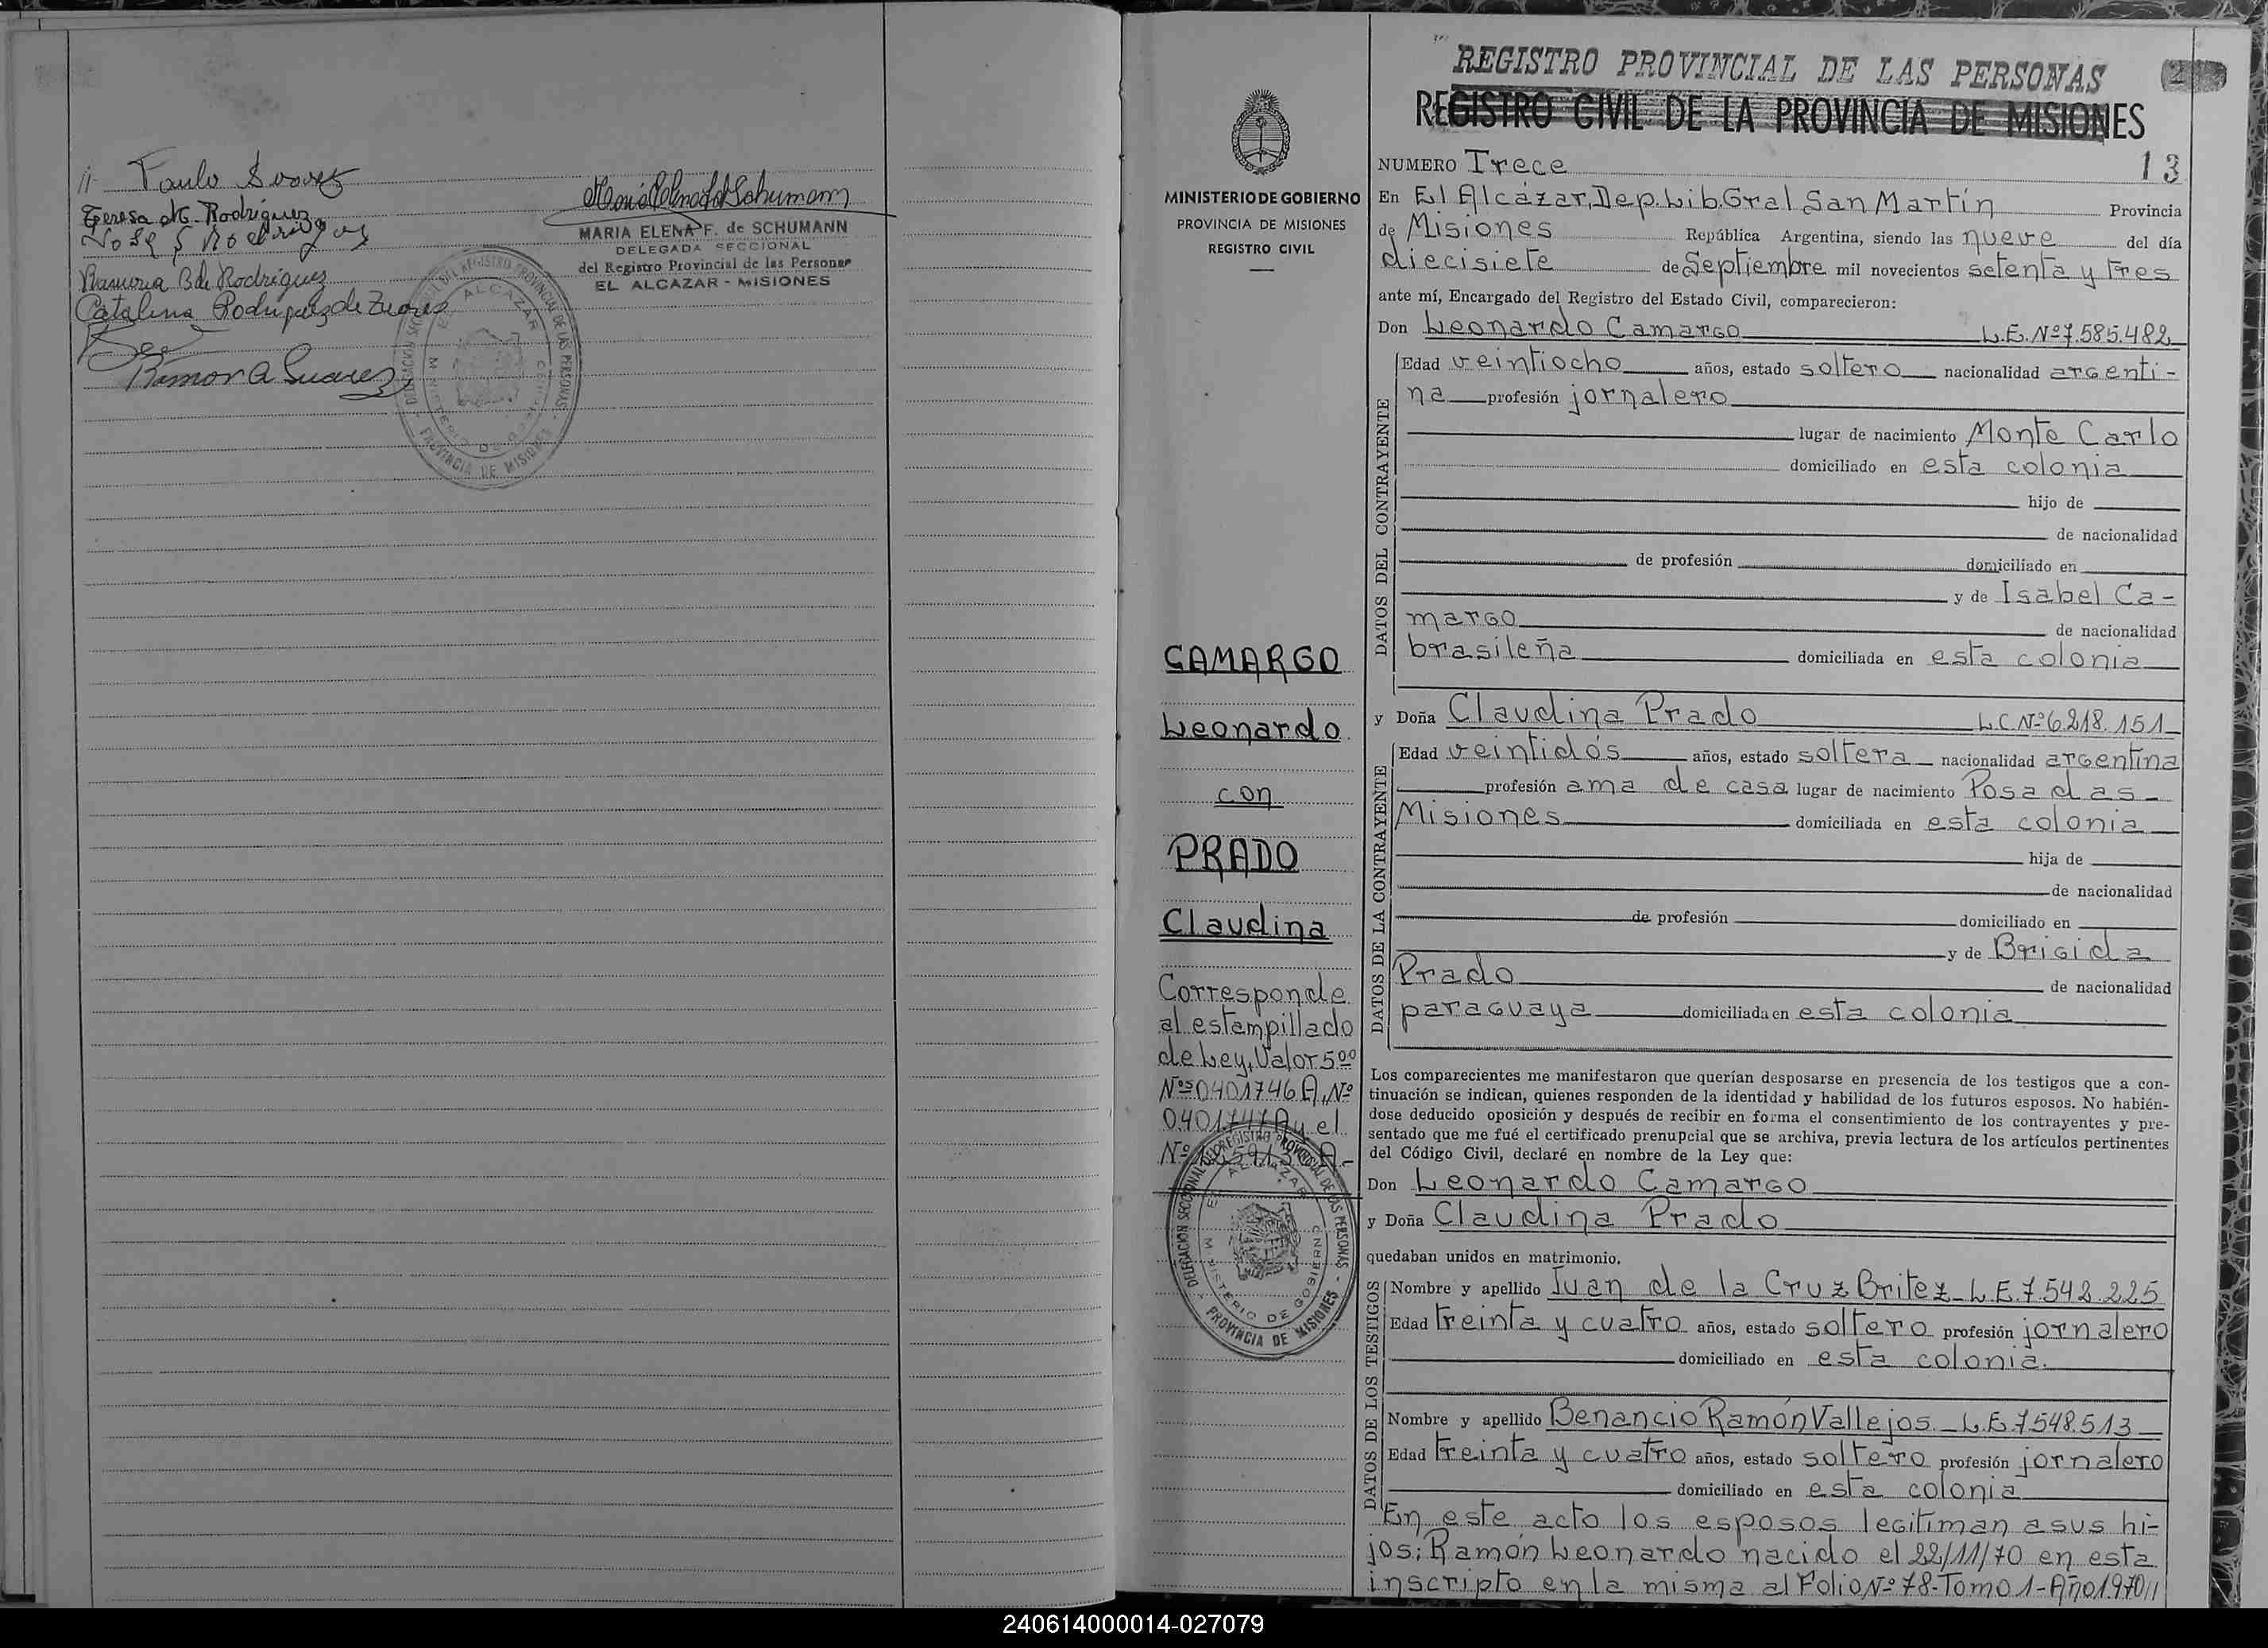 Paulo Suarez
Teresa M. Rodriguez
Jose Rodriguez
Ramona B de Rodriguez
Catalina Rodriguez de
Ramon A Suarez
MARIA ELENA F. de SCHUMANN
DELEGADA SECCIONAL
del Registro Provincial de las Personas
EL ALCAZAR - MISIONES
DELEGACION SECCIONAL DEL REGISTRO PROVINCIAL DE LAS PERSONAS
EL ALCAZAR
MINISTERIO DE GOBIERNO
PROVINCIA DE MISIONES
MINISTERIO DE GOBIERNO
PROVINCIA DE MISIONES
REGISTRO CIVIL
CAMARGO
Leonardo
con
PRADO
Claudina
Corresponde
al estampillado
de Ley, Valor 5ºº
Nºs 0401746 A, Nº
0401747 A y el
Nº
DELEGACION SECCIONAL DEL REGISTRO PROVINCIAL DE LAS PERSONAS
EL ALCAZAR
MINISTERIO DE GOBIERNO
PROVINCIA DE MISIONES
REGISTRO PROVINCIAL DE LAS PERSONAS
2
REGISTRO CIVIL DE LA PROVINCIA DE MISIONES
NUMERO Trece 13
En El Alcázar, Dep. Lib. Gral San Martín Provincia
de Misiones República Argentina, siendo las nueve del día
diecisiete de Septiembre mil novecientos setenta y tres
ante mí, Encargado del Registro del Estado Civil, comparecieron:
Don Leonardo Camargo L.E. Nº 7.585.482
DATOS DEL CONTRAYENTE
Edad veintiocho años, estado soltero nacionalidad argenti-
na profesión jornalero
lugar de nacimiento Monte Carlo
domiciliado en esta colonia
hijo de
de nacionalidad
de profesión domiciliado en
y de Isabel Ca-
margo de nacionalidad
brasileña domiciliada en esta colonia
y Doña Claudina Prado L.C. Nº 6.218.151
DATOS DE LA CONTRAYENTE
Edad veintidós años, estado soltera nacionalidad argentina
profesión ama de casa lugar de nacimiento Posadas-
Misiones domiciliada en esta colonia
hija de
de nacionalidad
de profesión domiciliado en
y de Brigida
Prado de nacionalidad
paraguaya domiciliada en esta colonia
Los comparecientes me manifestaron que querían desposarse en presencia de los testigos que a con-
tinuación se indican, quienes responden de la identidad y habilidad de los futuros esposos. No habién-
dose deducido oposición y después de recibir en forma el consentimiento de los contrayentes y pre-
sentado que me fué el certificado prenupcial que se archiva, previa lectura de los artículos pertinentes
del Código Civil, declaré en nombre de la Ley que:
Don Leonardo Camargo
y Doña Claudina Prado
quedaban unidos en matrimonio.
DATOS DE LOS TESTIGOS
Nombre y apellido Juan de la Cruz Britez - L.E. 7.542.225
Edad treinta y cuatro años, estado soltero profesión jornalero
domiciliado en esta colonia.
Nombre y apellido Benancio Ramón Vallejos. - L.E. 7.548.513
Edad treinta y cuatro años, estado soltero profesión jornalero
domiciliado en esta colonia
En este acto los esposos legitiman a sus hi-
jos: Ramón Leonardo nacido el 22/11/70 en esta
inscripto en la misma al Folio Nº 78-Tomo 1-Año 1970//
240614000014-027079